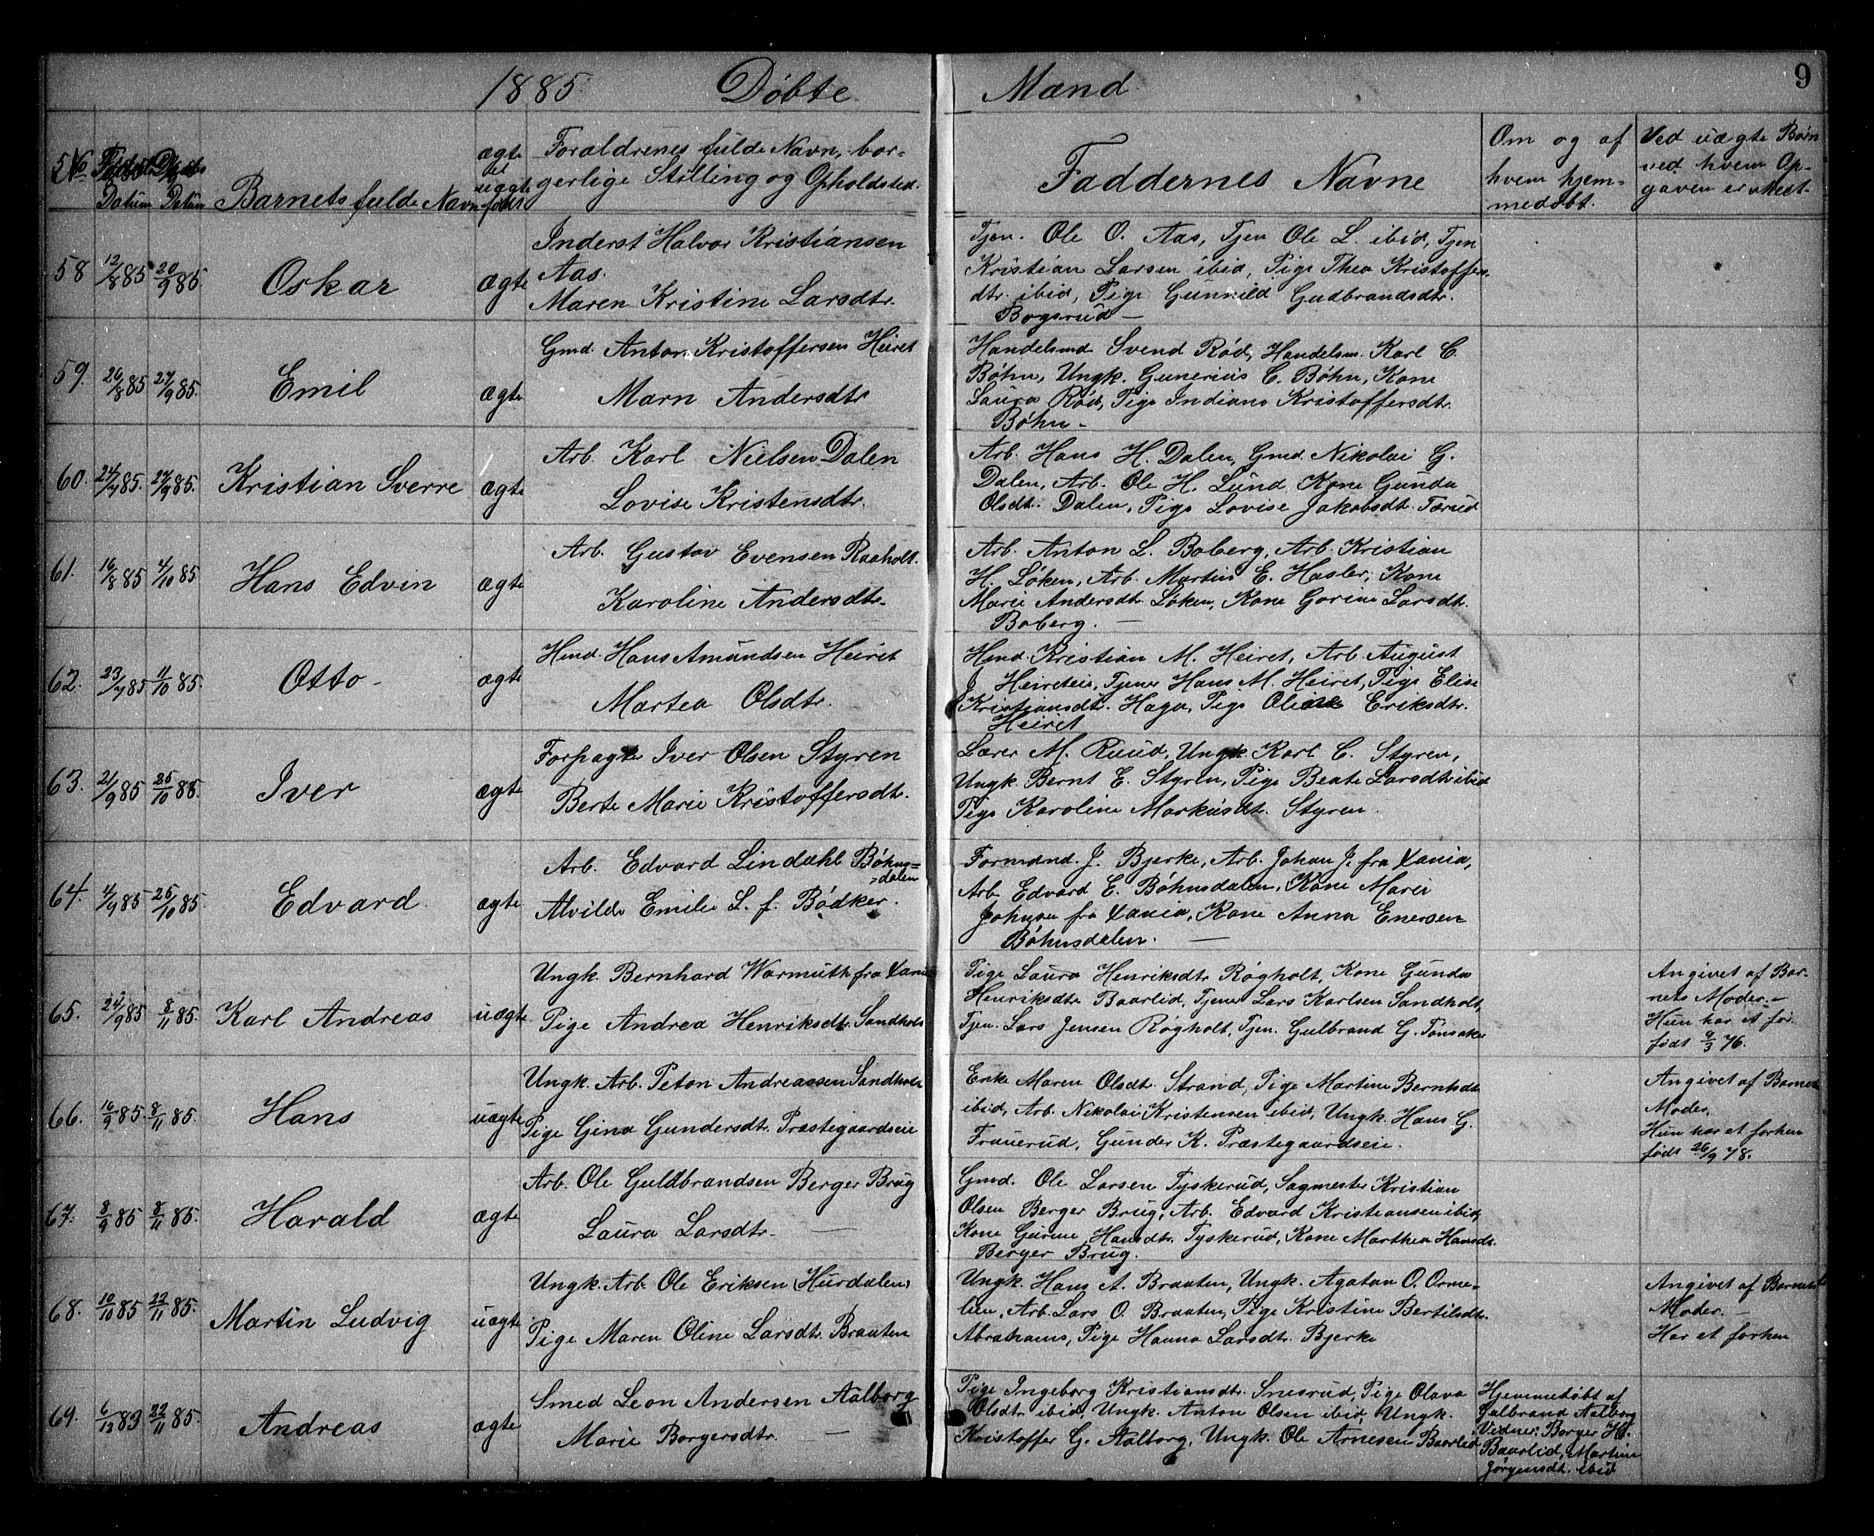 1885. Døbte Mænd. 9
No. Fødsels Datum Daabs Datum
Barnets fulde Navn
ægte
el.
uægte
født
Forældrenes fulde Navn, bor-
gerlige Stilling og Opholdsted.
Faddernes Navne
Om og af
hvem hjem-
medøbt.
Ved uægte Børn
ved hvem Op-
gaven er vktedt.
58 12/8 85 20/9 85. Oskar ægte
Inderst Halvor Kristiansen
Aas.
Maren Kristine Larsdtr.
Tjen. Ole O. Aas, Tjen Ole L. ibid, Tjen
Kristian Larsen ibid, Pige Thea Kristoffer-
dtr. ibid, Pige Gunnild Gudbrandsdtr.
Bogsrud —
59. 26/8 85 27/9 85. Emil ægte
Gmd. Anton Kristoffersen Heiret
Marn Andersdtr
Handelsmd Svend Rød, Handelsm. Karl C.
Bøhn, Ungk. Gunerius C. Bøhn, Kone
Laura Rød, Pige Indiana Kristoffersdtr.
Bøhn -
60. 24/7 85. 27/9 85. Kristian Sverre ægte
Arb. Karl Nielsen Dalen
Lovise Kristensdtr.
Arb. Hans H. Dalen, Gmd. Nikolai G.
Dalen, Arb. Ole H. Lund, Kone Gunda
Olsdt. Dalen, Pige Lovise Jakobsdt. Tærud
61. 16/8 85 4/10 85 Hans Edvin ægte
Arb. Gustav Evensen Raaholt.
Karoline Andersdtr.
Arb. Anton L. Boberg, Arb. Kristian
H. Løken, Arb. Martin E. Hasler, Kone
Marie Andersdt. Løken, Kone Gorine Larsdt.
Boberg. —
62. 23/7 85 11/10 85. Otto - ægte
Hmd. Hans Amundsen Heiret
Martea Olsdtr.
Hmd. Kristian M. Heiret, Arb. August
J. Heireteie, Tjener Hans M. Heiret, Pige Elise
Kristiansdt. Haga, Pige Oline Eriksdtr.
Heiret
63. 21/9 85 25/10 85. Iver ægte
Forpagte Iver Olsen Styren
Berte Marie Kristoffersdt.
Lærer M. Ruud, Ungk. Karl C. Styren,
Ungk. Bernt E. Styren, Pige Beate Larsdtr. ibid
Pige Karoline Markusdt. Styren.
64. 4/9 85 25/10 85. Edvard. ægte
Arb. Edvard Lindahl Bøhns-
dalen
Alvilde Emilie L. f. Bødker.
Formand. J. Bjerke, Arb. Johan J. fra Xania,
Arb. Edvard E. Bøhnsdalen, Kone Marie
Johnsen fra Xania, Kone Anna Enersen
Bøhnsdalen. —
65. 24/9 85 8/11 85. Karl Andreas uægte
Ungk. Bernhard Warmuth fra Xania
Pige Andrea Henriksdtr. Sandholt
Pige Laura Henriksdtr Røgholt, Kone Gunda
Henriksdtr. Baarlid, Tjener Lars Karlsen Sandholt,
Tjen. Lars Jensen Røgholt, Tjen. Gulbrand G. Tonsaker
Angivet af Bar-
nets Moder. -
Hun har et før
født 9/3 76.
66. 16/9 85. 8/11 85. Hans uægte
Ungk. Arb. Peton Andreassen Sandholt
Pige Gina Gundersdt. Præstegaardseie
Enke Maren Olsdt. Strand, Pige Martine Berntsdt.
ibid, Arb. Nikolai Kristensen ibid, Ungk. Hans G.
Frauerud, Gunder K. Præstegaardseie.
Angivet af Barnets
Moder.
Hun har et forhen
født 26/9 78.
67. 8/9 85 8/11 85. Harald ægte
Arb. Ole Guldbrandsen Berger Brug
Laura Larsdtr. —
Gmd. Ole Larsen Tyskerud, Sagmester Kristian
Olsen Berger Brug, Arb. Edvard Kristiansen ibid,
Kone Gurine Hansdtr. Tyskerud, Kone Marthea Hansdt.
Berger Brug.
68. 10/10 85 22/11 85. Martin Ludvig uægte
Ungk. Arb. Ole Eriksen (Hurdalen)
Pige Maren Oline Larsdtr. Braaten
Ungk. Hans A. Braaten, Ungk. Agaton O. Orme-
lien, Arb. Lars O. Braaten, Pige Kristine Bertilsdtr.
Abrahams, Pige Hanna Larsdtr. Bjerke
Angivet af Barnets
Moder. —
Har et forhen
69. 6/12 83 22/11 85. Andreas ægte
Smed Leon Andersen Aalborg
Marie Borgersdtr. —
Pige Ingeborg Kristiansdt. Snesrud, Pige Olava
Olsdtr. ibid, Ungk. Anton Olsen ibid, Ungk.
Kristoffer G. Aalborg, Ungk. Ole Arnesen Baarlid
Hjemmedøbt af
Gulbrand Aalborg
Vidner: Borger H.
Baarlid, Martine
Jørgensdt. ibid